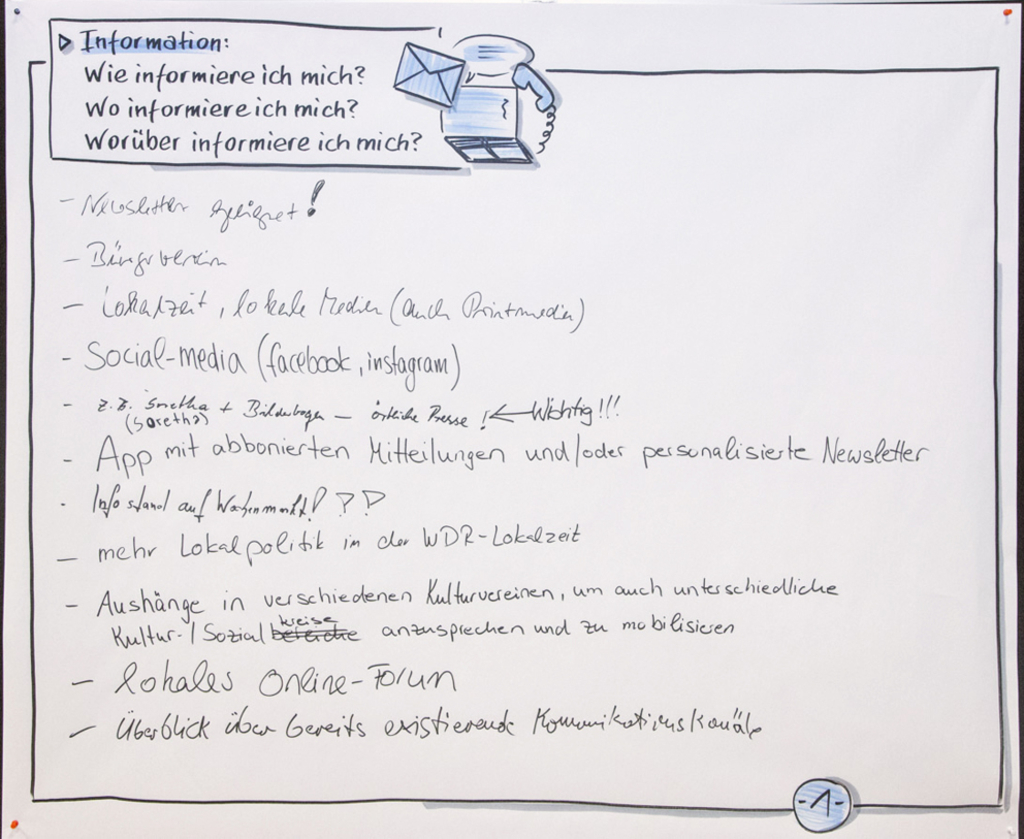 Information:
Wie informiere ich mich?
Wo informiere ich mich?
Worüber informiere ich mich?
- Newsletter geeignet!
- Bürgerverein
- Lokalzeit, lokale Medien (auch Printmedien)
- Social-media (facebook, instagram)
- z.B. + Bilderbogen - örtliche Presse! ← Wichtig!!!
- App mit abbonierten Mitteilungen und/oder personalisierte Newsletter
- Infostand auf Wochenmarkt! ??
- mehr Lokalpolitik in der WDR-Lokalzeit
- Aushänge in verschiedenen Kulturvereinen, um auch unterschiedliche
kreise
Kultur-/Sozial bereiche anzusprechen und zu mobilisieren
- lokales Online-Forum
- Überblick über bereits existierende Komunikationskanäle
-1-